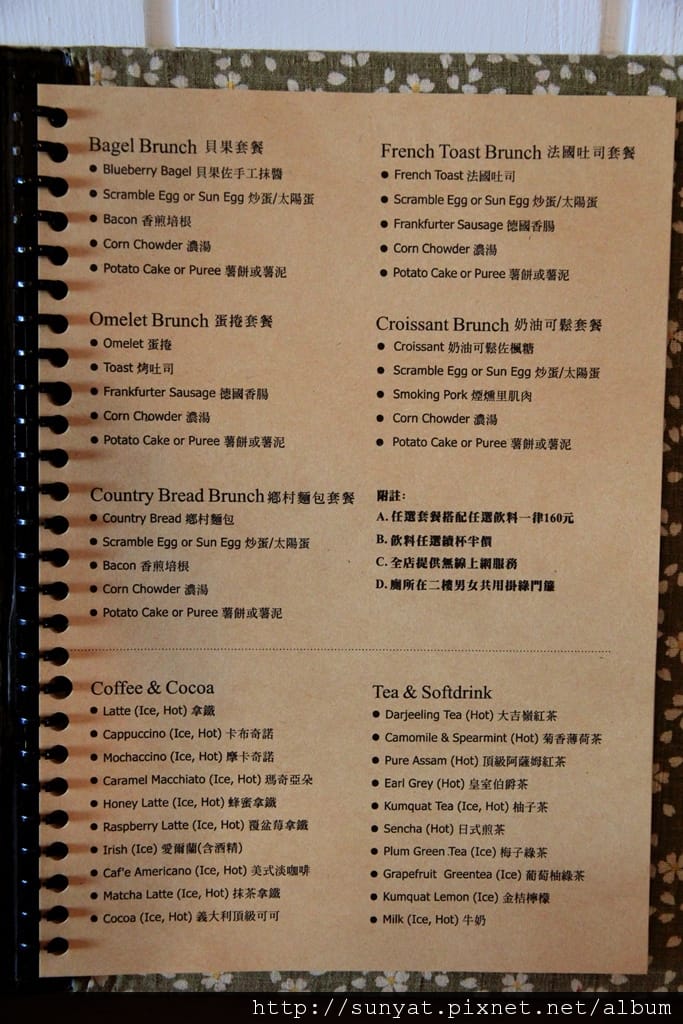 Bagel Brunch 貝果套餐
Blueberry Bagel 貝果佐手工抹醬
Scramble Egg or Sun Egg 炒蛋/太陽蛋
Bacon 香煎培根
Corn Chowder 濃湯
Potato Cake or Puree 薯餅或薯泥
French Toast Brunch 法國吐司套餐
French Toast 法國吐司
Scramble Egg or Sun Egg 炒蛋/太陽蛋
Frankfurter Sausage 德國香腸
Corn Chowder 濃湯
Potato Cake or Puree 薯餅或薯泥
Omelet Brunch 蛋捲套餐
Omelet 蛋捲
Toast 烤吐司
Frankfurter Sausage 德國香腸
Corn Chowder 濃湯
Potato Cake or Puree 薯餅或薯泥
Croissant Brunch 奶油可鬆套餐
Croissant 奶油可鬆佐楓糖
Scramble Egg or Sun Egg 炒蛋/太陽蛋
Smoking Pork 煙燻里肌肉
Corn Chowder 濃湯
Potato Cake or Puree 薯餅或薯泥
Country Bread Brunch 鄉村麵包套餐
Country Bread 鄉村麵包
Scramble Egg or Sun Egg 炒蛋/太陽蛋
Bacon 香煎培根
Corn Chowder 濃湯
Potato Cake or Puree 薯餅或薯泥
附註:
A. 任選套餐搭配任選飲料一律160元
B. 飲料任選續杯半價
C. 全店提供無線上網服務
D. 廁所在二樓男女共用掛綠門簾
Coffee & Cocoa
Latte (Ice, Hot) 拿鐵
Cappuccino (Ice, Hot) 卡布奇諾
Mochaccino (Ice, Hot) 摩卡奇諾
Caramel Macchiato (Ice, Hot) 瑪奇亞朵
Honey Latte (Ice, Hot) 蜂蜜拿鐵
Raspberry Latte (Ice, Hot) 覆盆莓拿鐵
Irish (Ice) 愛爾蘭(含酒精)
Caf'e Americano (Ice, Hot) 美式淡咖啡
Matcha Latte (Ice, Hot) 抹茶拿鐵
Cocoa (Ice, Hot) 義大利頂級可可
Tea & Softdrink
Darjeeling Tea (Hot) 大吉嶺紅茶
Camomile & Spearmint (Hot) 菊香薄荷茶
Pure Assam (Hot) 頂級阿薩姆紅茶
Earl Grey (Hot) 皇室伯爵茶
Kumquat Tea (Ice, Hot) 柚子茶
Sencha (Hot) 日式煎茶
Plum Green Tea (Ice) 梅子綠茶
Grapefruit Greentea (Ice) 葡萄柚綠茶
Kumquat Lemon (Ice) 金桔檸檬
Milk (Ice, Hot) 牛奶
http://sunyat.pixnet.net/album